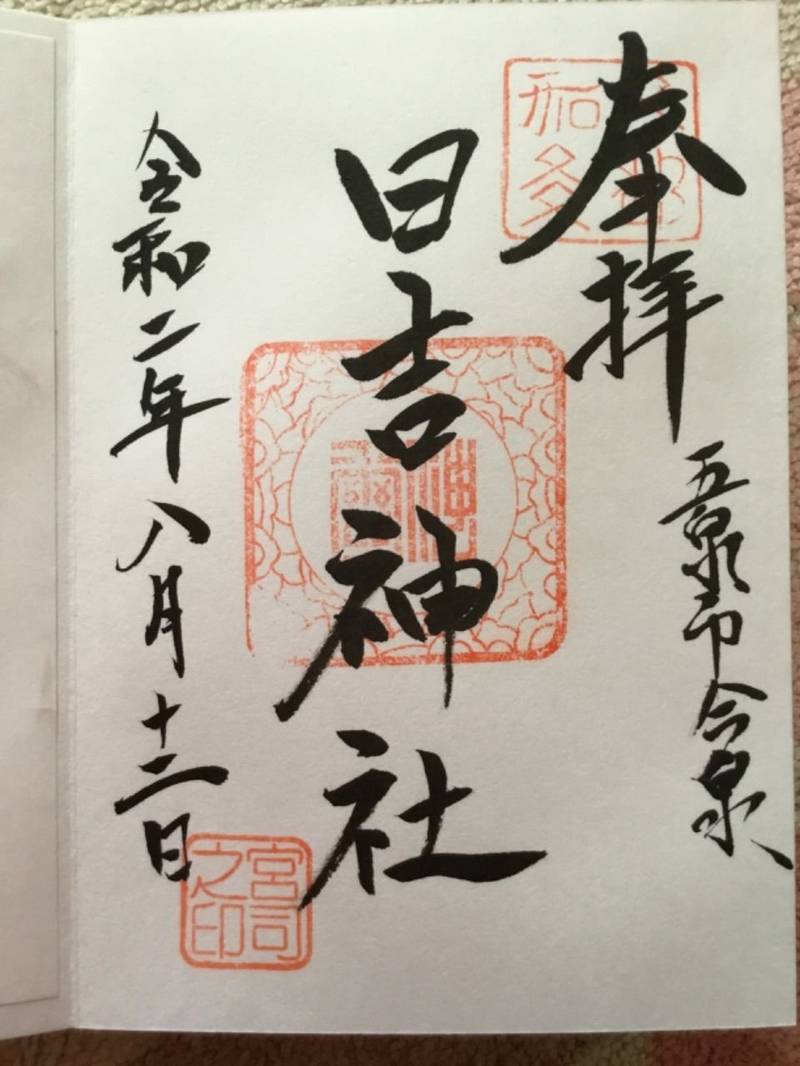 奉拝
五泉市今泉
日吉神社
令和二年八月十二日
宮司
之印